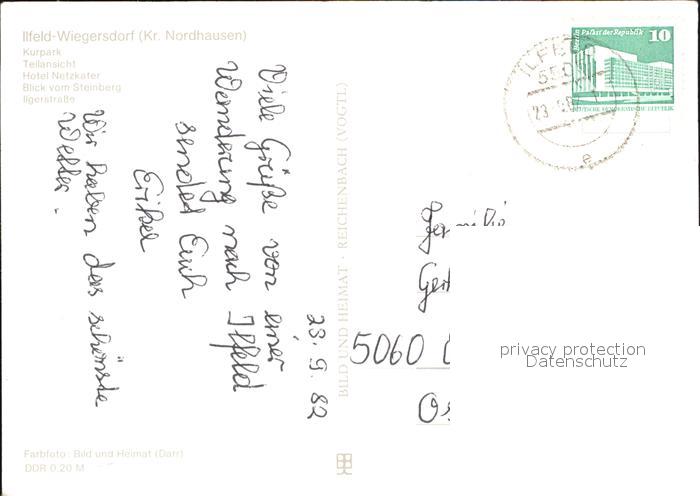 Ilfeld-Wiegersdorf (Kr. Nordhausen)
Kurpark
Teilansicht
Hotel Netzkater
Blick vom Steinberg
Ilgerstraße
Berlin Palast der Republik 10
DEUTSCHE DEMOKRATISCHE REPUBLIK
ILFELD
23. 9. 82
Viele Grüße von einer
Wanderung nach Ilfeld
sendet Euch
Wir haben das schönste
Wetter.
BILD UND HEIMAT · REICHENBACH (VOGTL)
5060
privacy protection
Datenschutz
Farbfoto: Bild und Heimat (Darr)
DDR 0,20 M